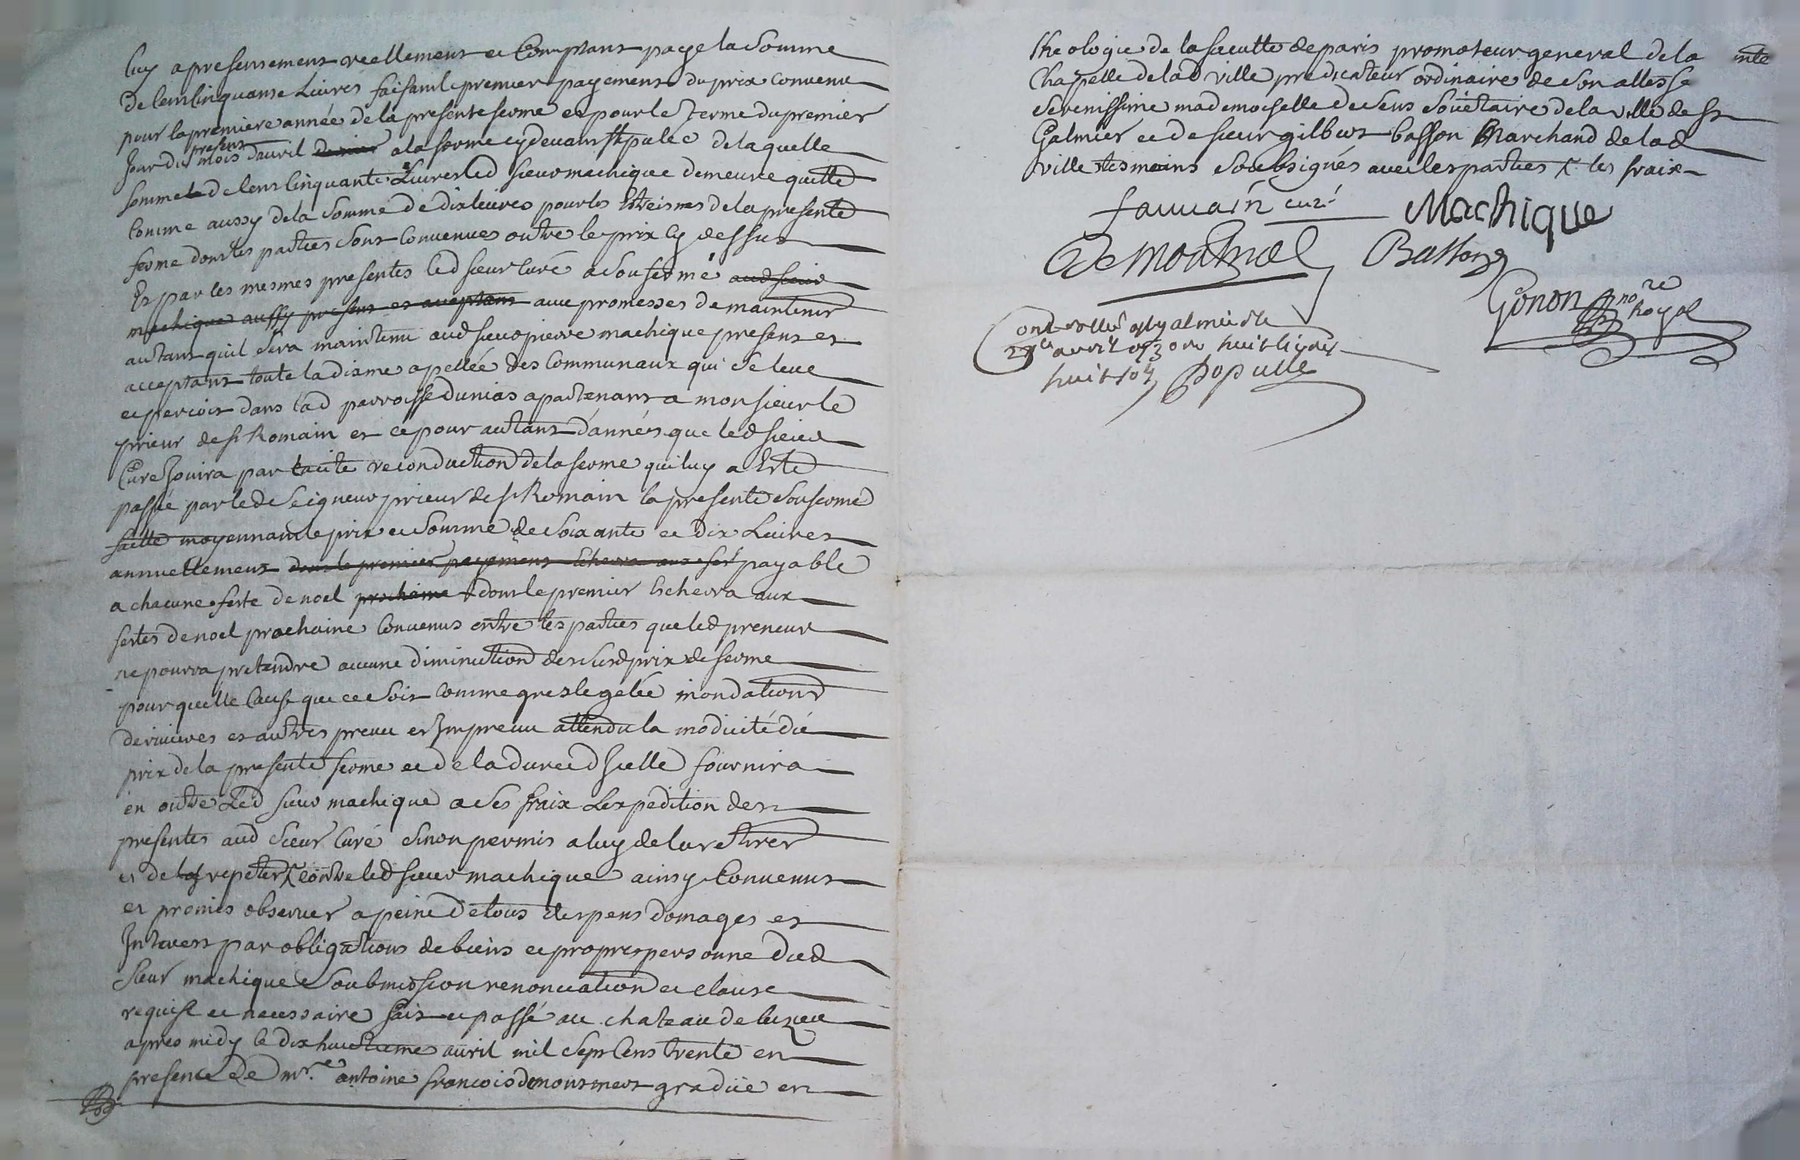 luy a presentement reellement et Comptant payé la Somme
de Cent Cinquante Livres faisant le premier payement du prix convenu
pour la premiere année de la presente ferme et pour le terme du premier
Jour du present mois d'avril a la forme cy devant stipulée de laquelle
somme de Cent Cinquante Livres led sieur machique demeure quitte
Comme aussy de la Somme de dix livres pour les Estreismes de la presente
ferme dont les parties Sont Convenues outre le prix Cy dessus
Et par les mesmes presentes led sieur Curé a Soufermé aud sieur
machique aussy present et aceptant avec promesses de maintenir
autant quil Sera maintenu aud sieur pierre machique present et
acceptant toute la dixme apellée des Communaux qui Se leve
et percoit dans lad parroisse dunias apartenant a monsieur le
prieur de st Romain et ce pour autant d'années que led sieur
Curé Jouira par tacite reconduction de la ferme qui luy a Esté
passée par led Seigneur prieur de st Romain la presente Souferme
faitte moyennant le prix et Somme de Soixante et dix Livres
annuellement dont le premier payement Echerra aux fet payable
a chacune feste de noel prochaine dont le premier Eschevra aux
festes de noel prochaine Convenus entre les parties que led preneur
ne pourra pretendre aucune diminution des Susd prix de ferme
pour quelle Cause que ce Soit comme gresle gelée inondations
de rivieres et autres preveu et Impreveu attendu la modicité du
prix de la presente ferme et de la durée d'Icelle fournira
en outre Led sieur machique a Ses fraix Lexpedition des
presentes aud Sieur Curé Sinon permis a luy de la retirer
et de repeter X contre led sieur machique ainsy Convenus
et promis observer a peine de tous despens domages et
Interest par obligations de biens et propre personne dud
Sieur machique Soubmission renonciation et clause
requise et necessaire fait et passé au chateau de luzieu
apres midy le dix huictieme avril mil Sept Cens trente en
presence de mre antoine francois demontmert gradüé en
theologie de la faculté de paris promoteur general de la nte
Chapelle de lad ville predicateur ordinaire de Son altesse
Serenissime mademoiselle de Sens Societaire de la ville de St
Galmier et de sieur gilbert basson Marchand de lad
ville tesmoins Soubsignés avec les parties X les fraix
fauvain curé
Machique
Basson
Gonon no re Royal
Controllé a St galmier le
avril 1730 recu huit livres
huit sols Populle